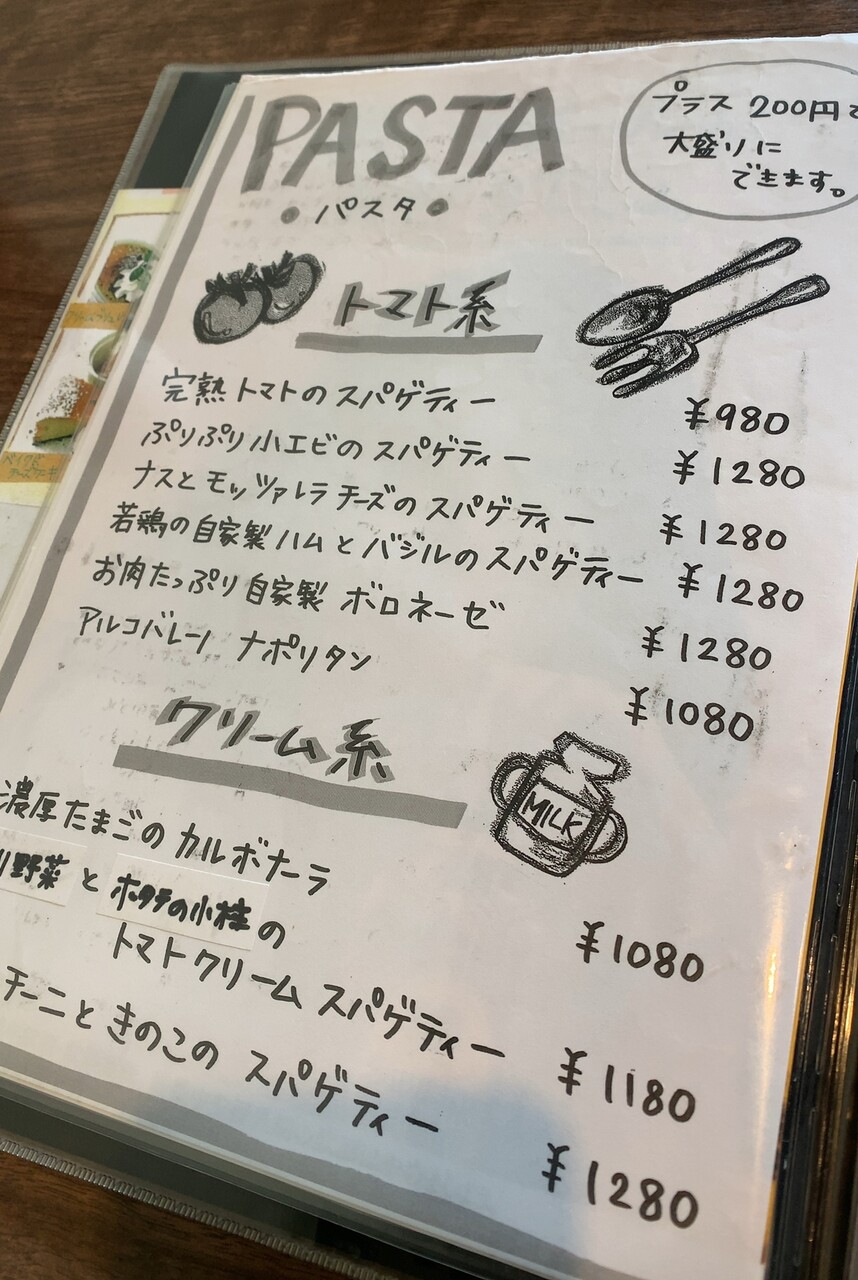 PASTA
・パスタ・
プラス 200円で
大盛りに
できます。
トマト系
完熟トマトのスパゲティー ¥980
ぷりぷり小エビのスパゲティー ¥1280
ナスとモッツァレラチーズのスパゲティー ¥1280
若鶏の自家製ハムとバジルのスパゲティー ¥1280
お肉たっぷり自家製 ボロネーゼ ¥1280
アルコバレーノ ナポリタン ¥1080
クリーム系
MILK
濃厚たまごのカルボナーラ ¥1080
野菜とホタテの小柱の
トマトクリームスパゲティー ¥1180
チーニときのこの スパゲティー ¥1280